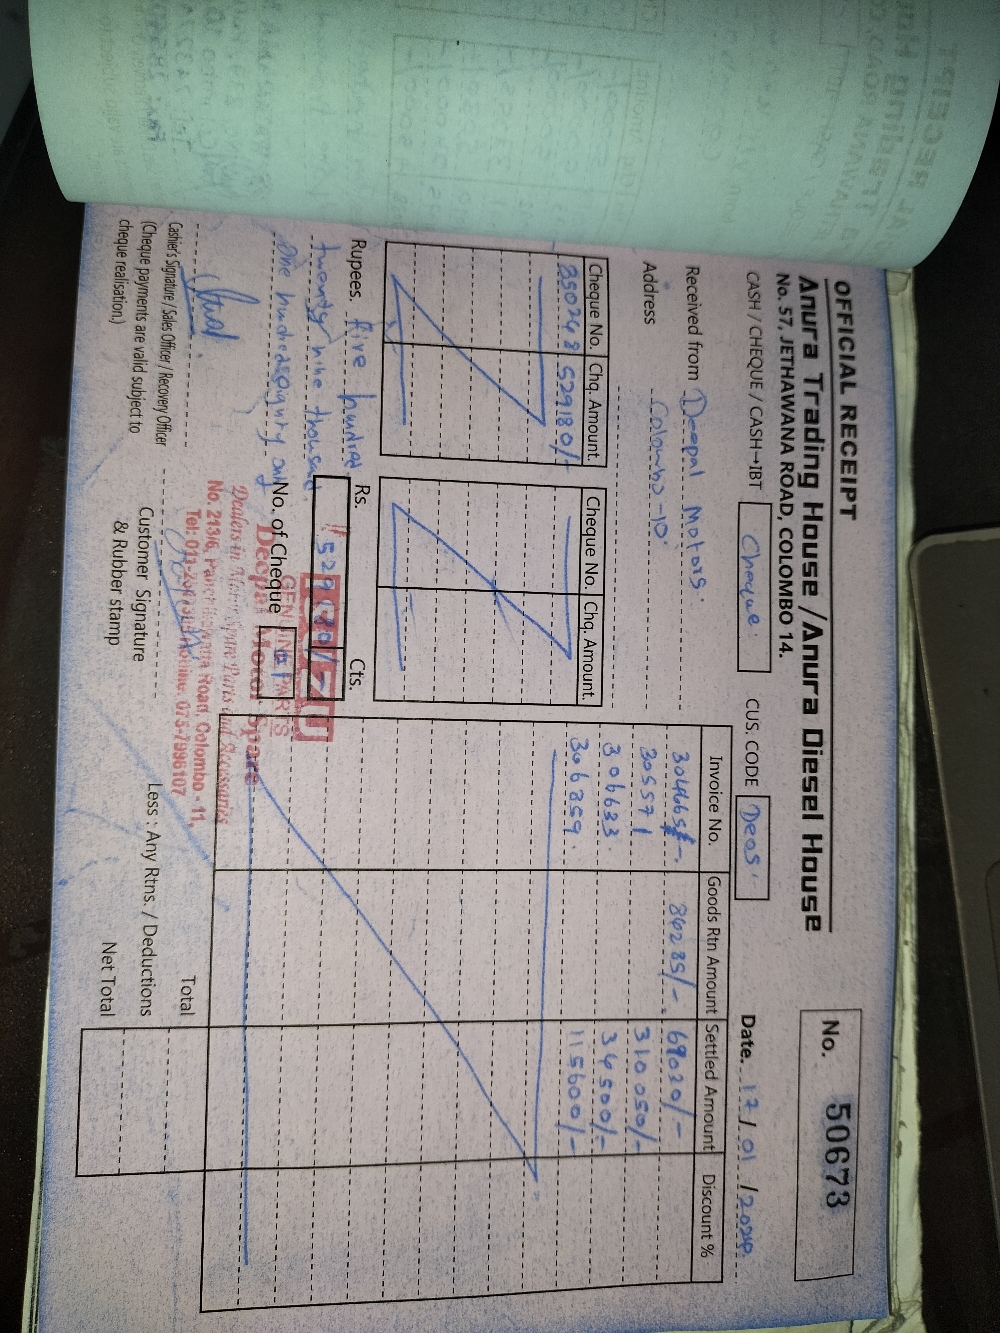 OFFICIAL RECEIPT
Anura Trading House / Anura Diesel House
No. 57, JETHAWANA ROAD, COLOMBO 14.
No. 50673
CASH / CHEQUE / CASH→IBT Cheque. CUS. CODE Dea5. Date. 17 / 01 / 2024.
Received from Deepal Motors.
Address Colombo-10.
Cheque No. Chq. Amount. Cheque No. Chq. Amount.
529180/-
Invoice No. Goods Rtn Amount Settled Amount Discount %
304665 34235/-. 69030/-
305571 310050/-
306633. 34500/-
306859. 115600/-
Rupees. five hundred
twenty nine thousand
One hundred only
Rs. Cts.
529180/-
No. of Cheque 01
GENUINE PARTS
Deepal Motor Spare
Dealers in Motor Spare Parts and Accessories
Road, Colombo - 11.
075-7996107
Cashier's Signature / Sales Officer / Recovery Officer
(Cheque payments are valid subject to
cheque realisation.)
Customer Signature
& Rubber stamp
Total
Less : Any Rtns. / Deductions
Net Total